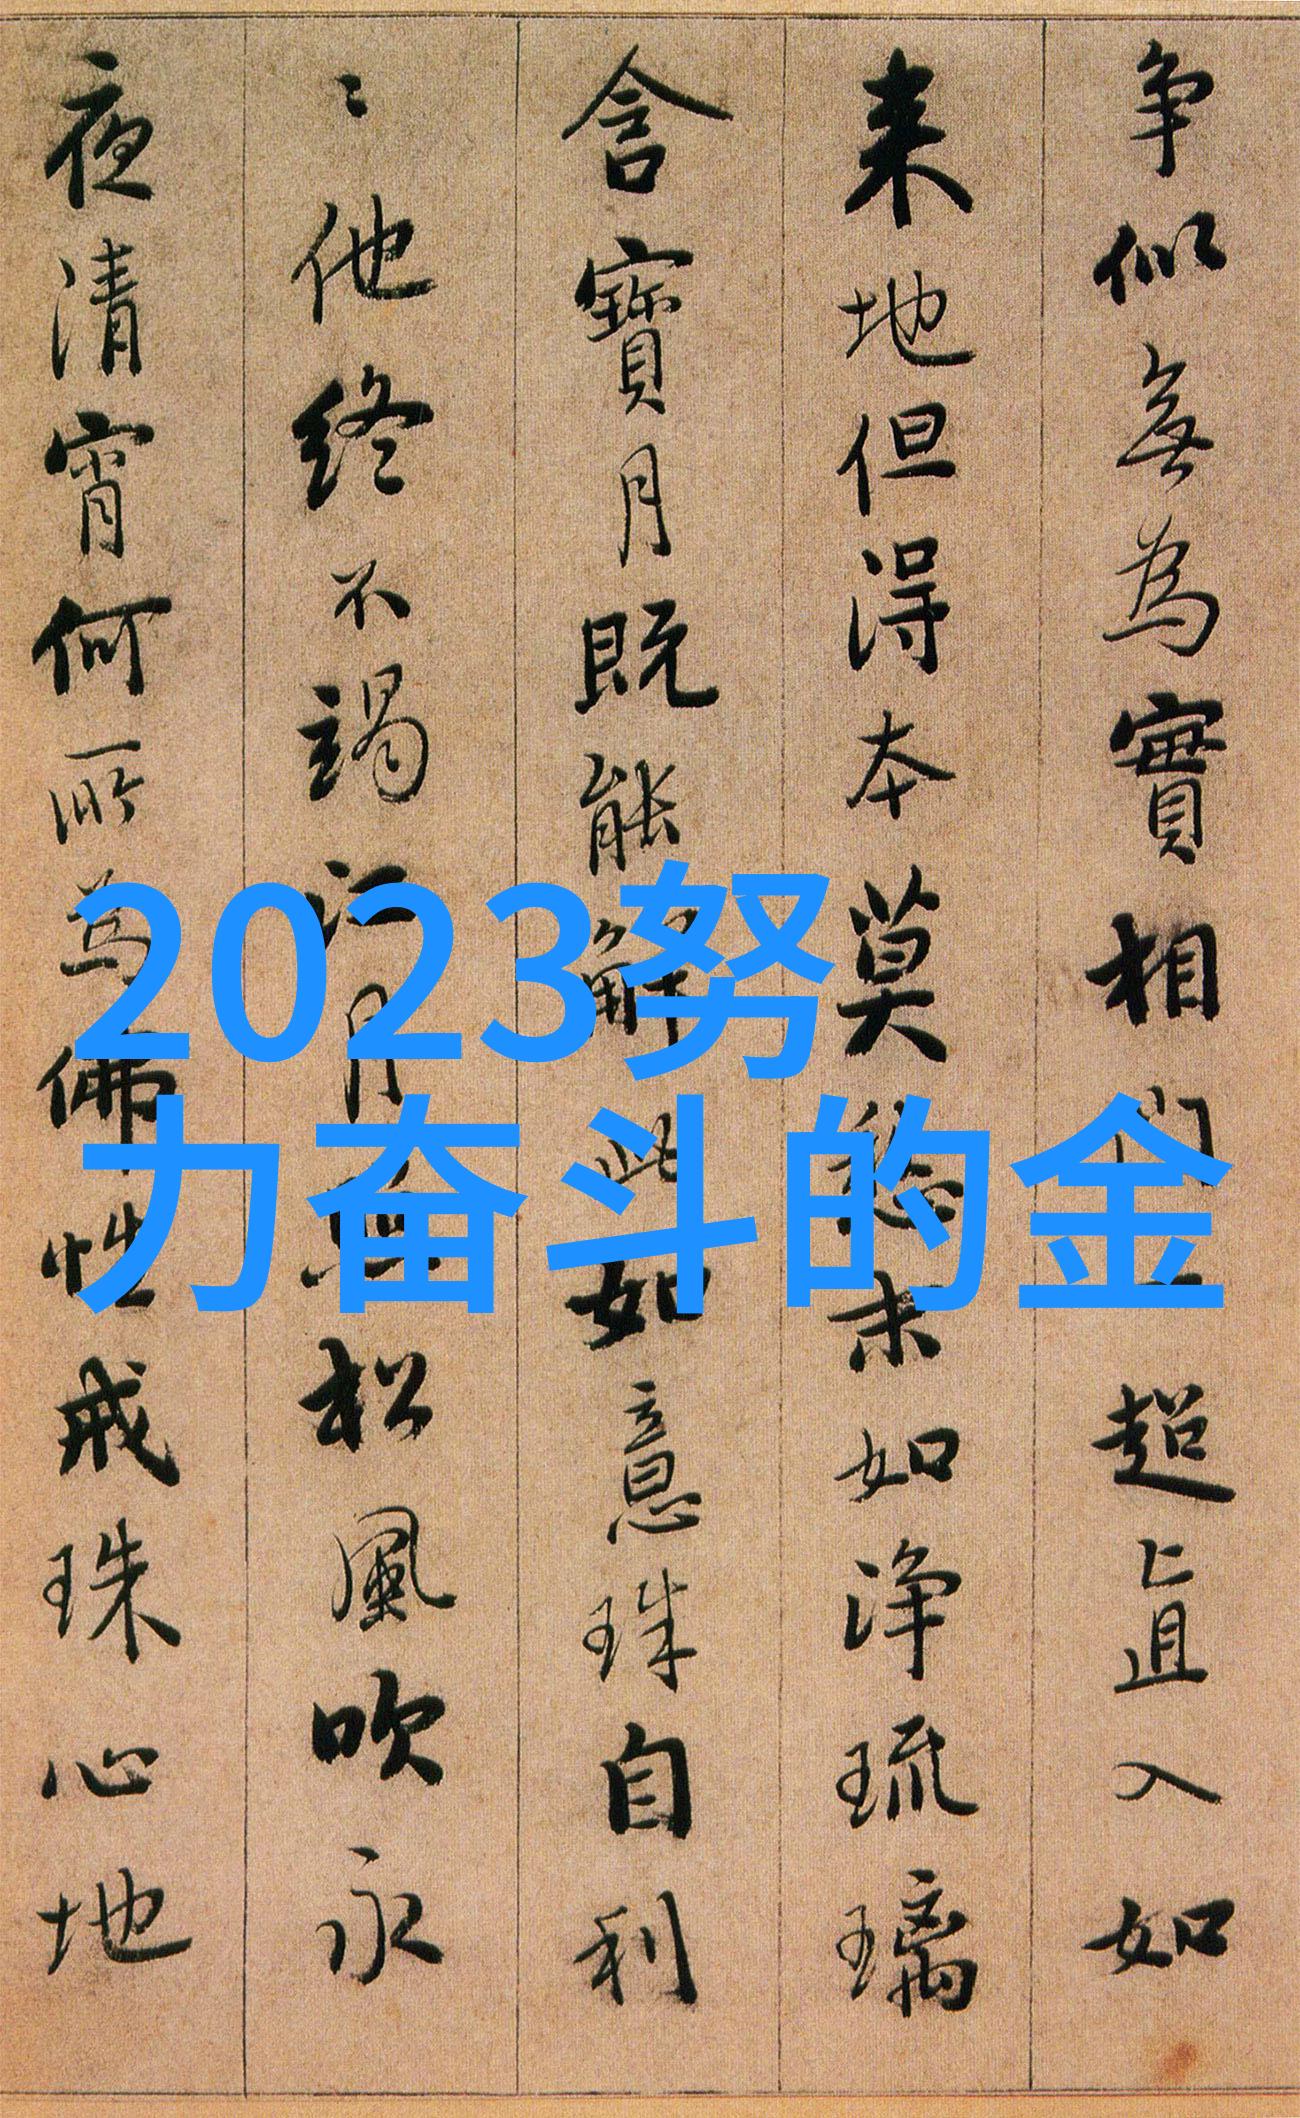 争似無為實相門一超直入如
来地但得本莫愁末如淨琉璃
含寶月既能解此如意珠自利
〻他終不竭江月照松風吹永
夜清宵何所為佛性戒珠心地
2023努
力奋斗的金